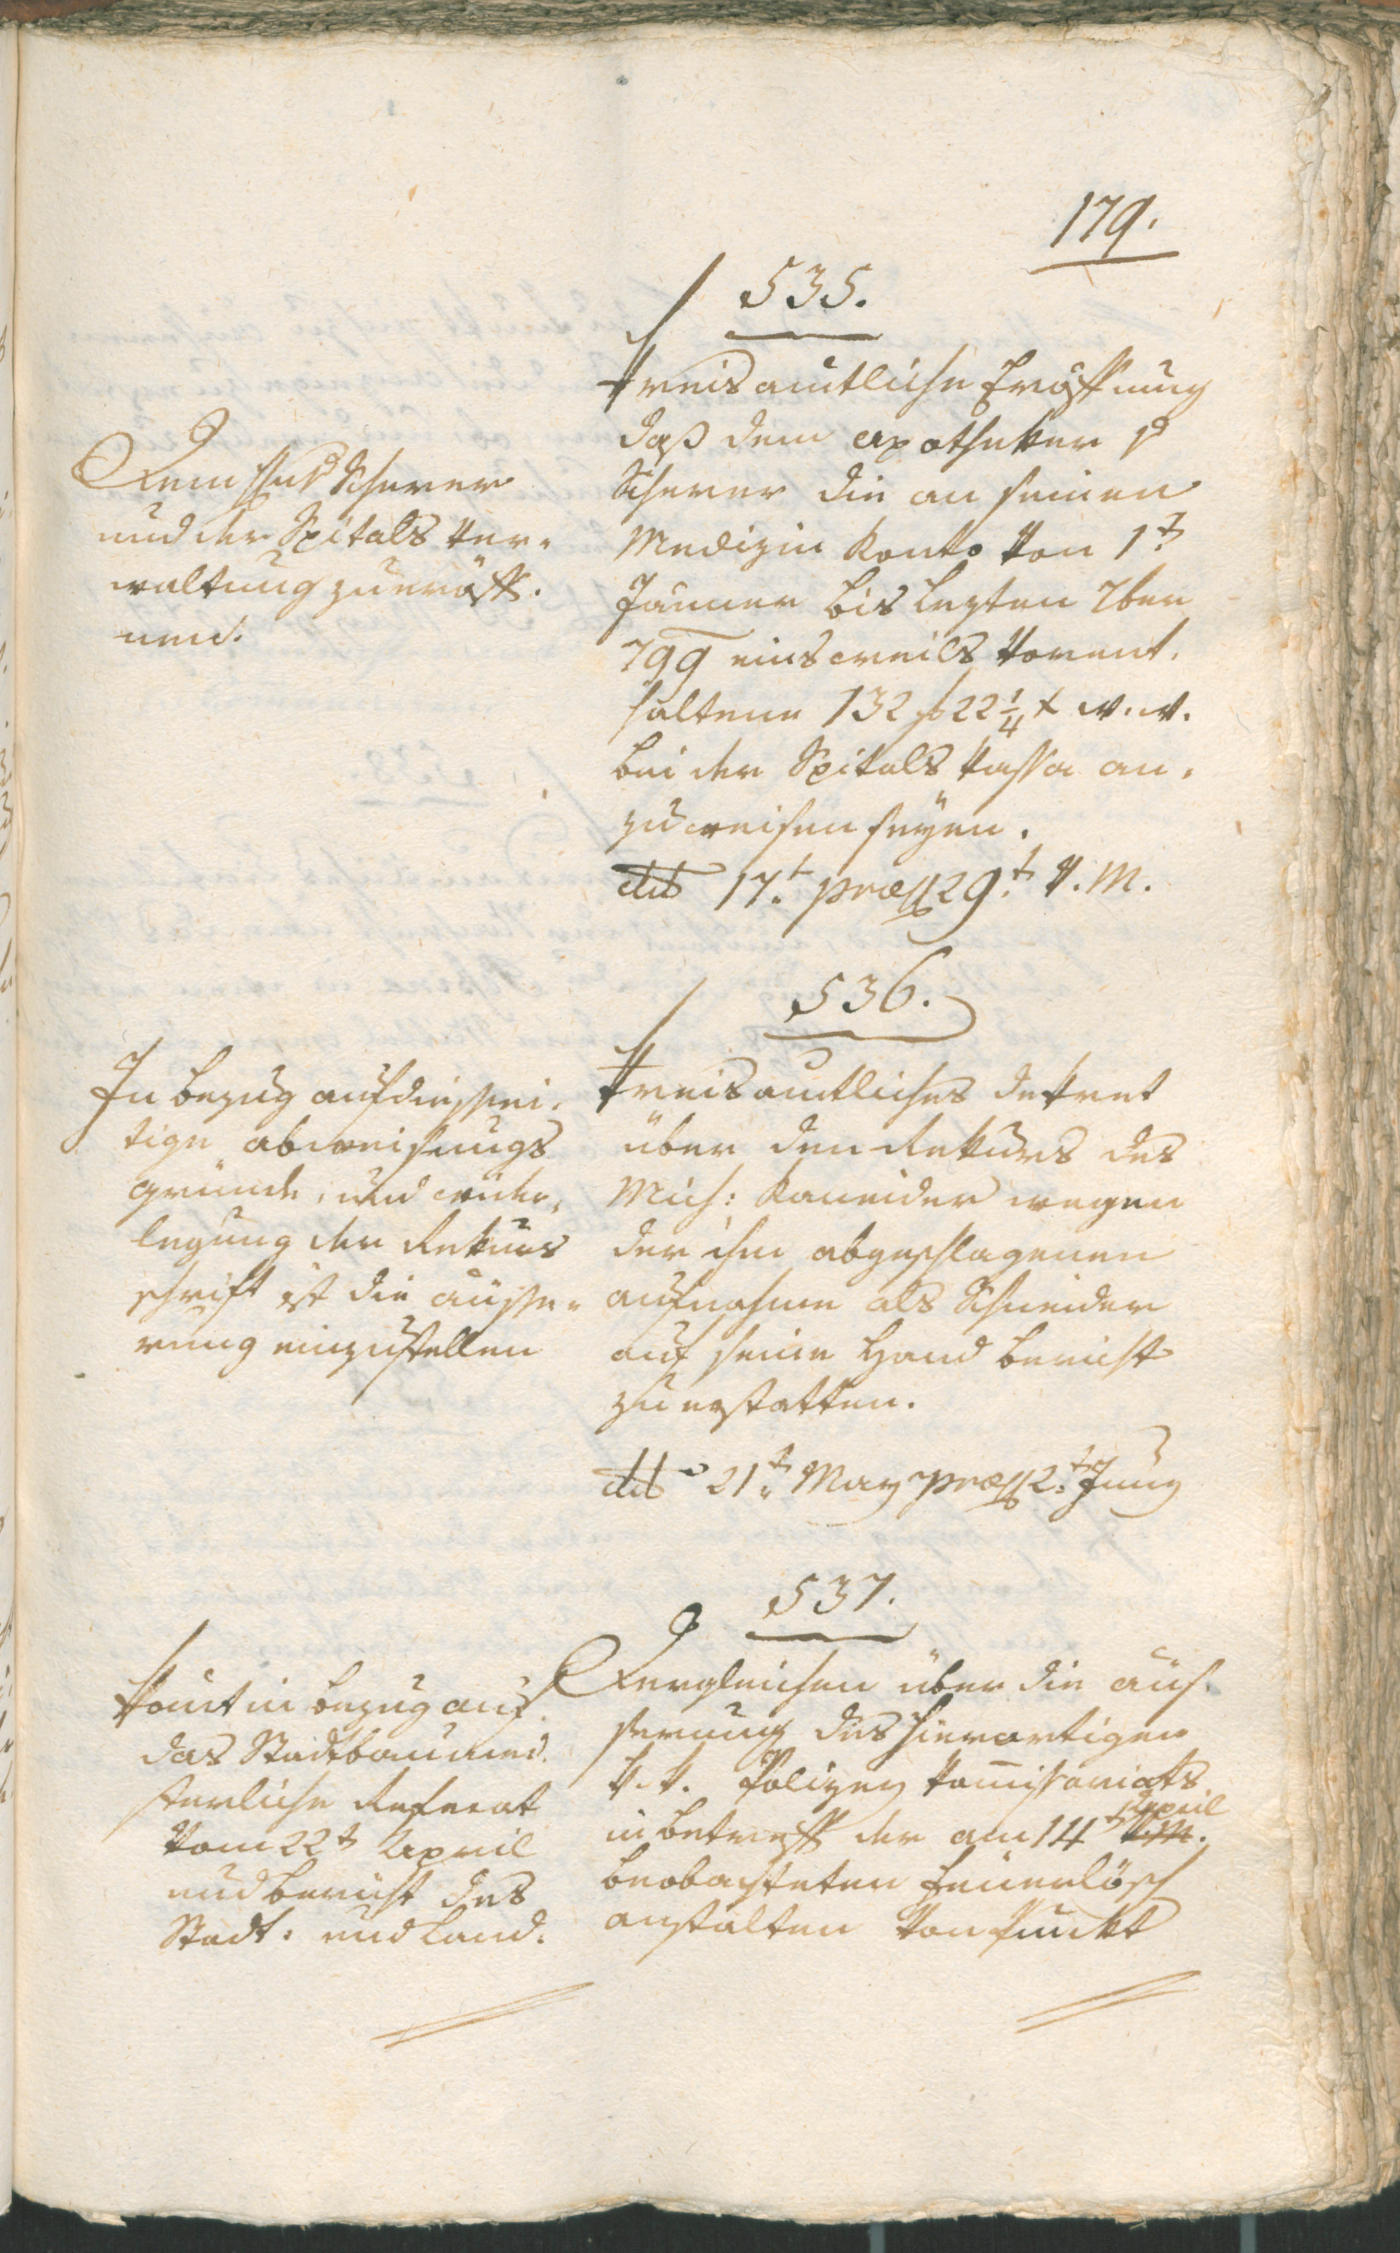 179.
535.
Kreisamtliche Eröffnung
daß dem Apotheker H
Scherer die an seinem
Medizin Konto von 1t
Jänner bis lezten 7ber
799 einsweils vorent-
haltene 132 f 22 1/4 x W. W.
bei der Spitals Kassa an-
zuweisen seyen.
ddo 17t präs 29t v. M.
Dem Scherer
und der Spitals Ver-
waltung zu eröff-
nen.
536.
Kreisamtliches Dekret
über den Rekurs des
Mich: Kaneider wegen
der ihm abgeschlagenen
Aufnahme als Schneider
auf seine Hand Bericht
zu erstatten.
ddo 21t May präs 2t Juny
In Bezug auf diessei-
tige Abweisungs
Gründe, und wider-
legung der Rekurs
schrift ist die Äusse-
rung einzustellen
537.
Dergleichen über die Äus-
serung des hierortigen
k. k. Polizey Kommissariats
in Betreff der am 14t v. M. April
beobachteten Feuerlösch
anstalten von Punkt
kömt in Bezug auf
das Stadtbaumei-
sterliche Referat
vom 22t April
und Bericht des
Stadt- und Land-